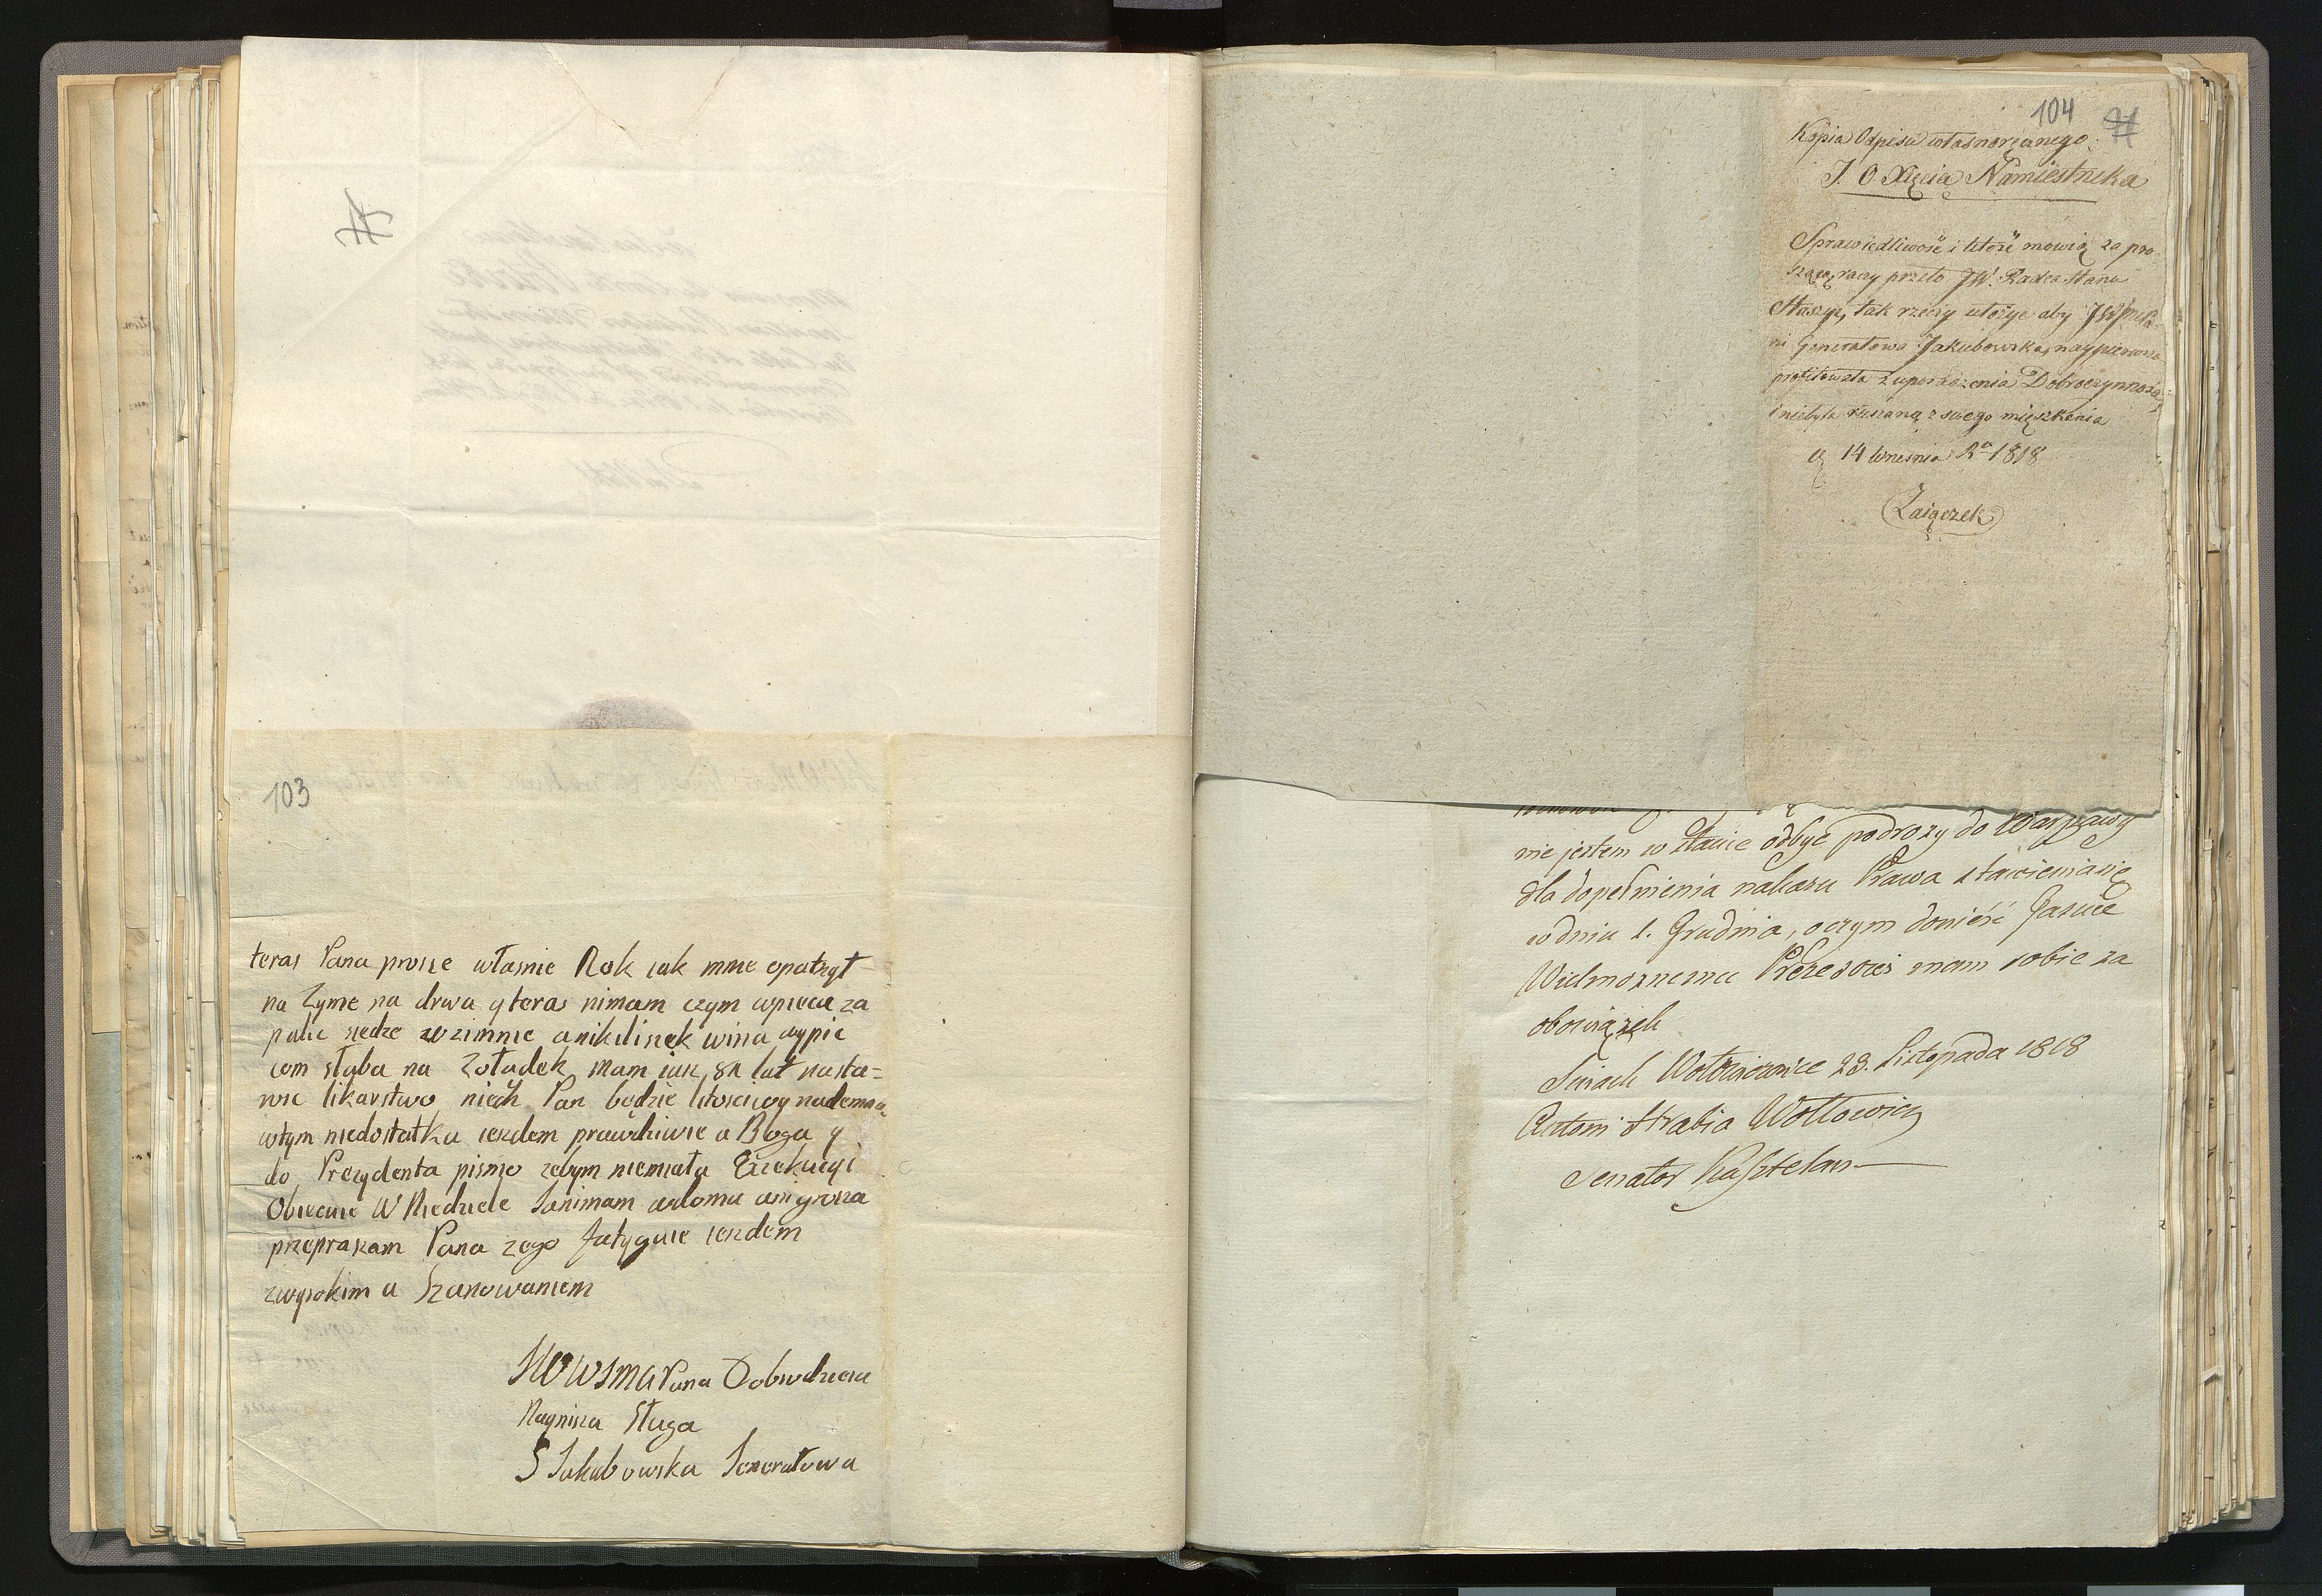 103
teras Pana prosze własnie Rok iak mnie opatrzył
na Zyme na drwa y teras nimam czym wpiecu za
palic siedze wzimnie anikilisek wina wypic
com słaba na Zołądek mam iusz 81 lat nasta=
rosc likarstwo niech Pan będzie litosciwy nademno
wtym niedostatku iezdem prawdziwie u Boga y
do Prezydenta pismo zebym niemiała Exekucyi
Obiecuie W Niedziele Ianimam wdomu ani grosza
przeprazam Pana zego fatyguie iezdem
zwysokim u Szanowaniem
Pana Dobrodzieia
Naynisza Sługa
S Jakubowska Ienerałowa
104
Kopia Odpisu własnoręcznego
J. O Xięcia Namiestnika
Sprawiedliwość i litość mowią za pro-
szącą, raczy przeto JW. Radca Stanu
Staszyc, tak rzeczy ułożyć aby
ni Generałowa Jakubowska, naypierwsza
profitowała z uposażenia Dobroczynności
i niebyła ruszaną z swego mięszkania
d 14 Wrzesnia Ra 1818
Zaiączek
nie jestem w stanie odbyć podroży do Warszawy
dla dopełnienia nakazu Prawa stawienia się
w dniu 1. Grudnia, o czym donieść Jasnie
Wielmożnemu Prezesowi mam sobie za
obowiązek
28. Listopada 1818
Antoni Hrabia Wołłowicz
Senator Kasztelan